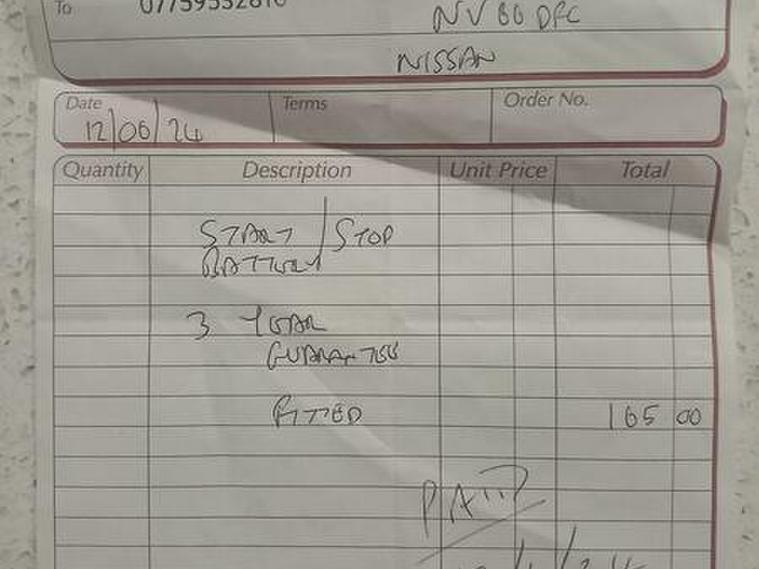 To
NV66 DFC
NISSAN
Date Terms Order No.
12/06/24
Quantity Description Unit Price Total
START / STOP
BATTERY
3 YEAR
GUARANTEE
FITTED 165 00
PAID